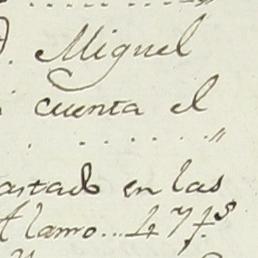 . Miguel
cuenta el
astado en las
Alamo...